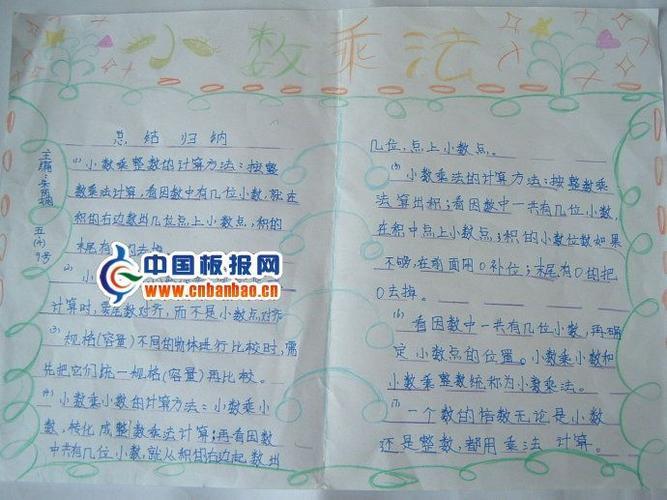 小数乘法
总结归纳
(1)小数乘整数的计算方法：按整
数乘法计算，看因数中有几位小数，就从
积的右边数出几位点上小数点，积的
末尾有
去掉
(2)小
计算时，要末数对齐，而不是小数点对齐
(3)规格(容量)不同的物体进行比较时，需
先把它们统一规格(容量)再比较。
(4)小数乘小数的计算方法：小数乘小
数，转化成整数乘法计算；再看因数
中共有几位小数，就从积的右边起数出
几位，点上小数点。
(5)小数乘法的计算方法：按整数乘
法算出积；看因数中一共有几位小数，
在积中点上小数点；积的小数位数如果
不够，在前面用0补位；末尾有0的把
0去掉。
(6)看因数中一共有几位小数，再确
定小数点的位置。小数乘小数和
小数乘整数统称为小数乘法。
(7)一个数的倍数无论是小数
还是整数，都用乘法计算。
主编：
五(4)
9号
中国板报网
www.cnbanbao.cn